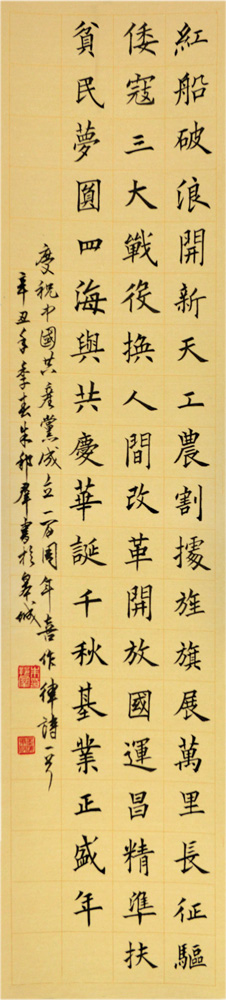 紅船破浪開新天工農割據旌旗展萬里長征驅
倭寇三大戰役換人間改革開放國運昌精準扶
貧民夢圓四海與共慶華誕千秋基業正盛年
慶祝中國共產黨成立一百周年喜作律詩一首
辛丑年季春朱
羣書於
城